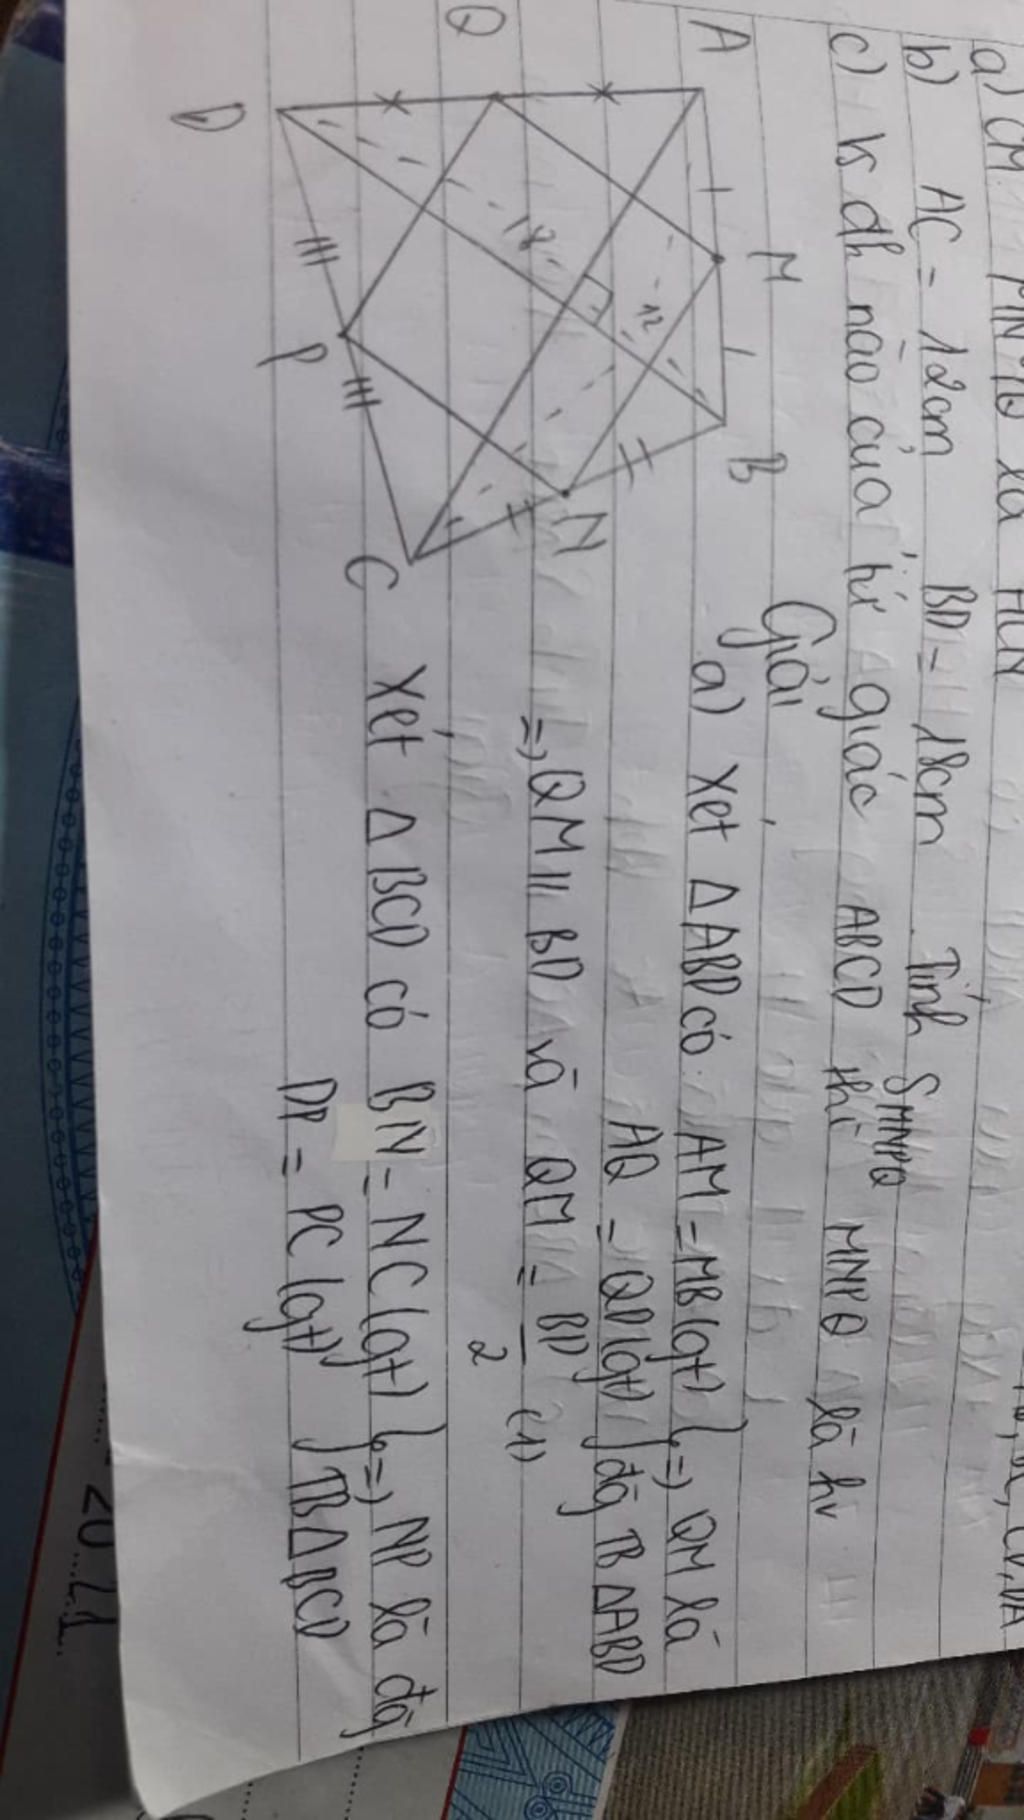 CD, DA
a) CM MNPQ là HCN
b) AC = 12cm BD = 18cm. Tính SMNPQ
c) Vs đk nào của tứ giác ABCD thì MNPQ là hv
Giải
A
M
B
Q
N
D
P
C
18
12
a) Xét Δ ABD có AM = MB (gt) } => QM là
AQ = QD (gt) đg TB Δ ABD
=> QM // BD và QM = BD/2 (1)
Xét Δ BCD có BN = NC (gt) } => NP là đg
DP = PC (gt) TB Δ BCD
20 21